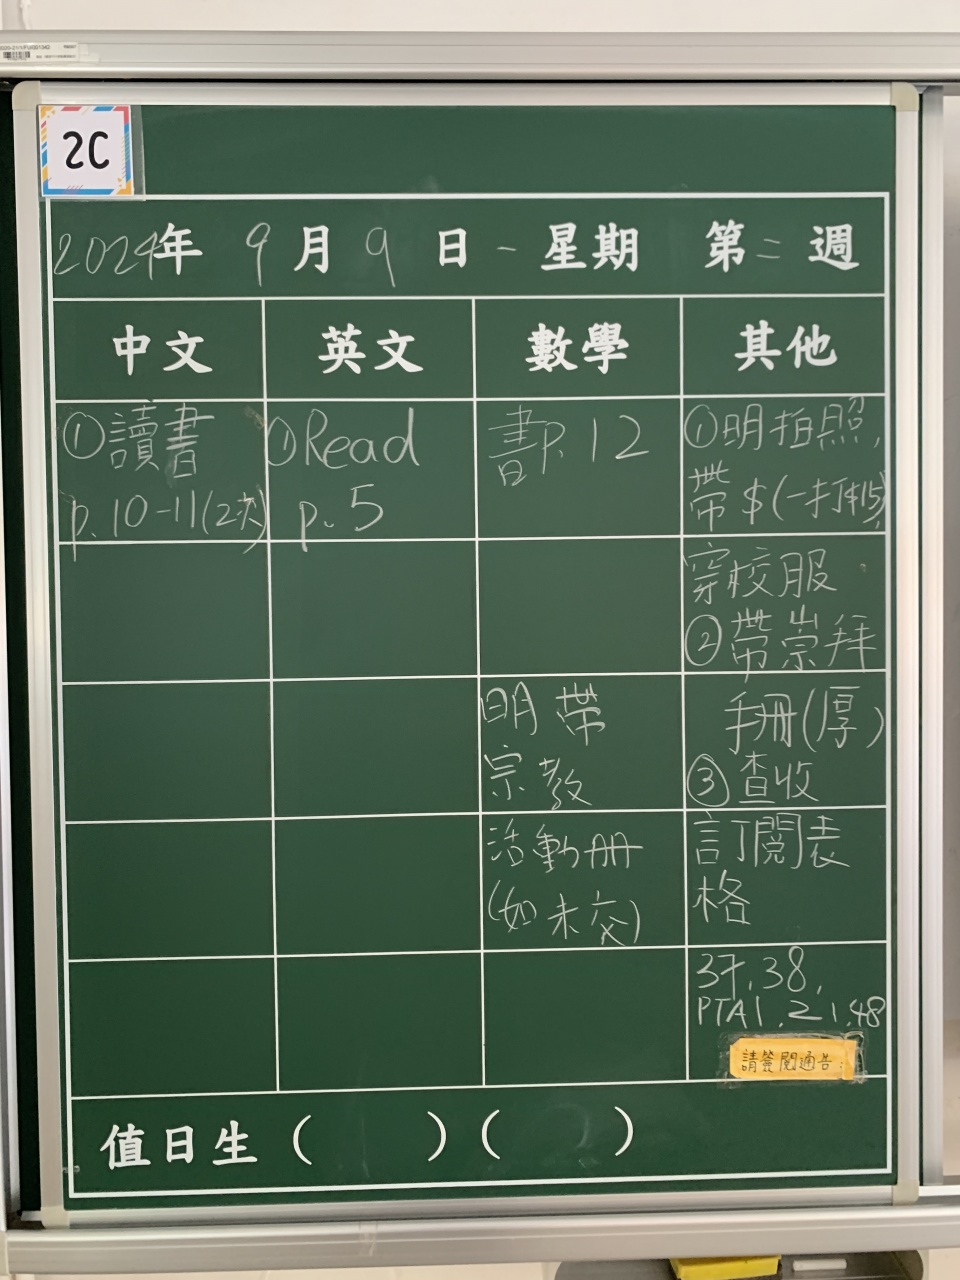 2C
2024年 9月 9日 一 星期 第二週
中文 英文 數學 其他
①讀書
p.10-11(2次)
①Read
p.5
書P.12
①明拍照,
帶$(一打$15)
穿校服
②帶崇拜
手冊(厚)
③查收
訂閱表
格
明帶
宗教
活動冊
(如未交)
37,38,
PTA1,21,48
請簽閱通告:
值日生( )( )